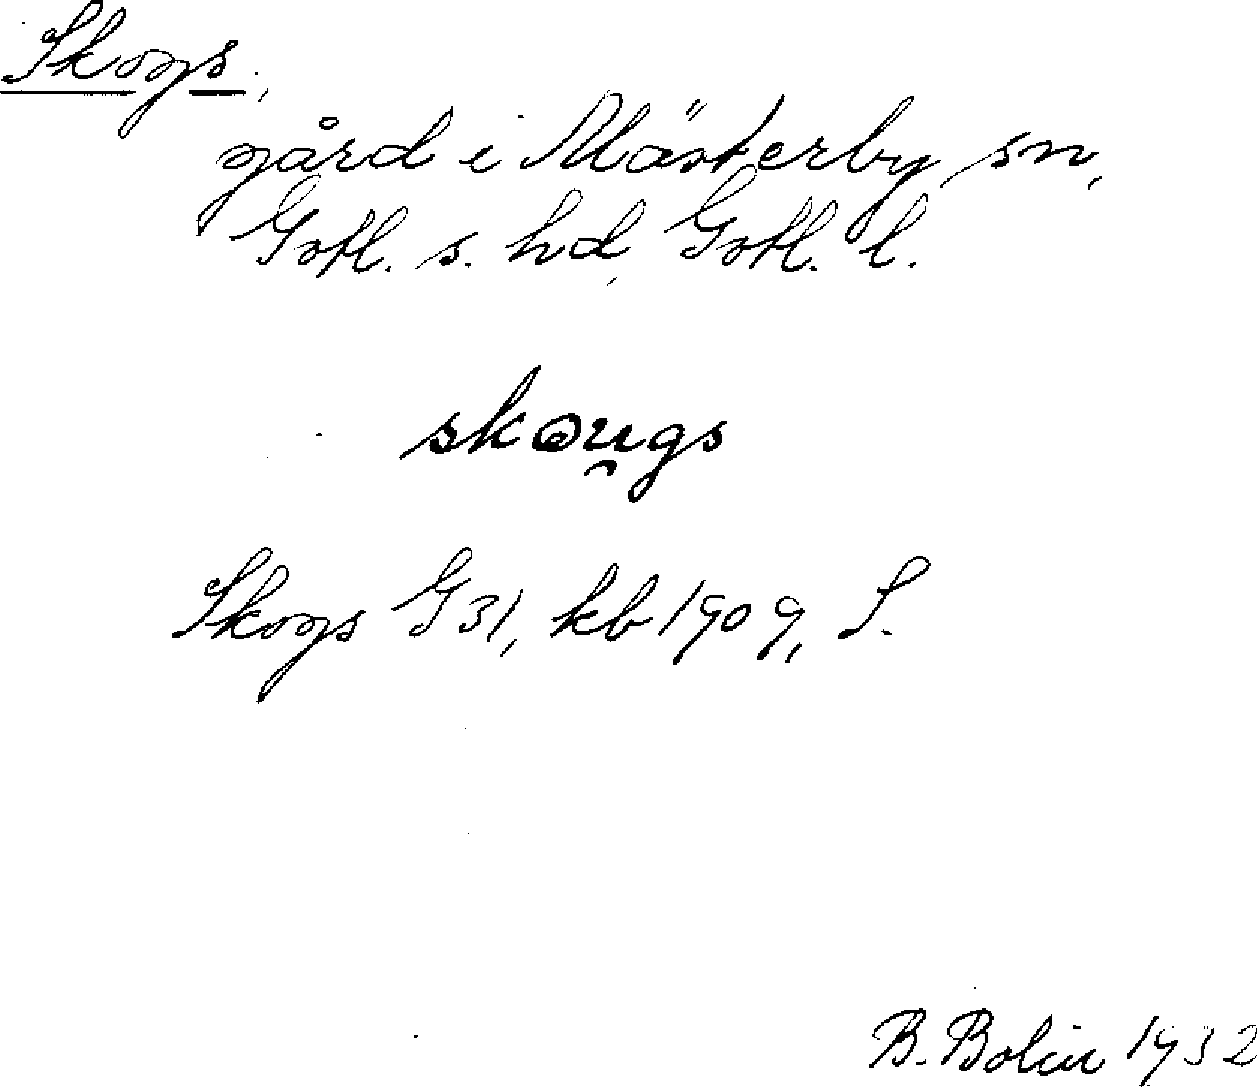 Skogs,
gård i Mästerby sn,
Gotl. s. hd, Gotl. l.
skou̯gs
Skogs G 31, kb 1909, S.
B. Bolin 1932